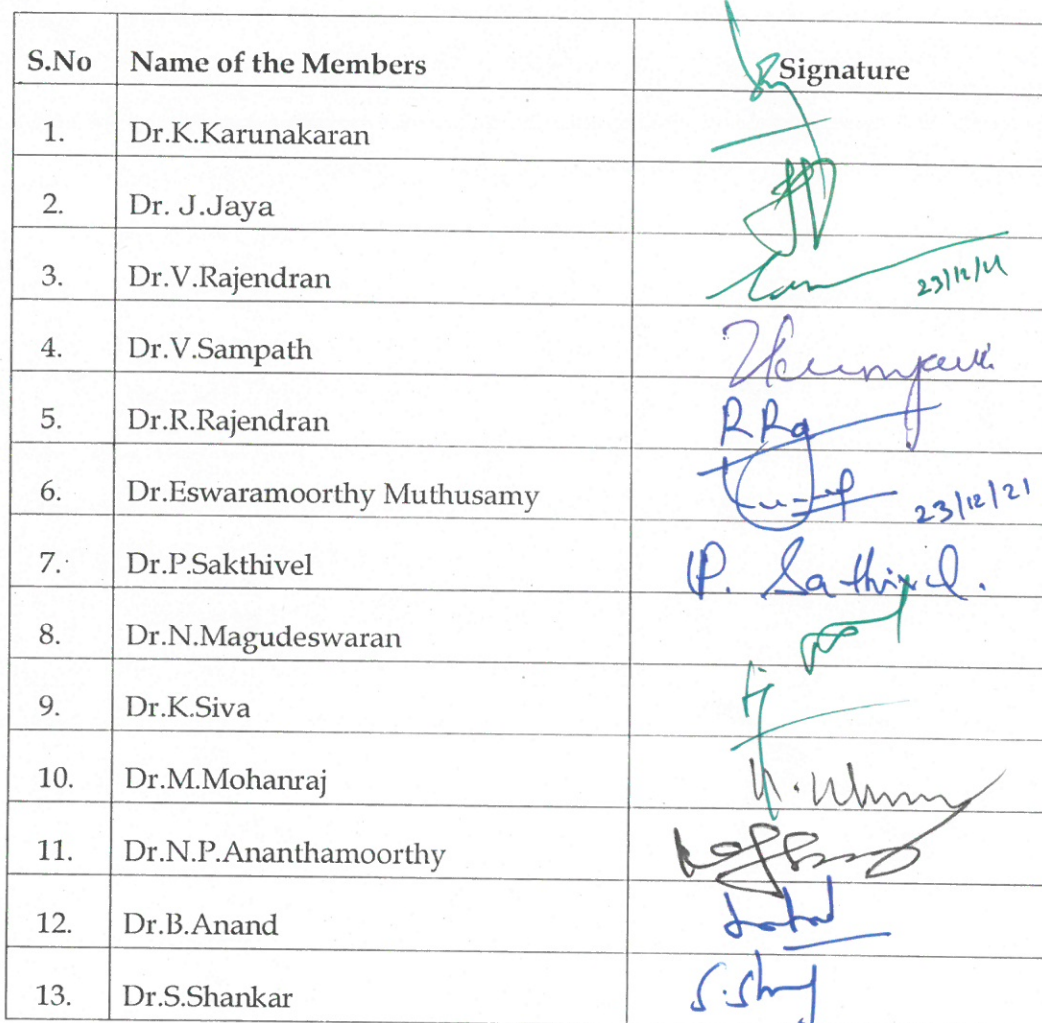 S.No Name of the Members Signature
1. Dr.K.Karunakaran
2. Dr. J.Jaya
3. Dr.V.Rajendran 23/12/21
4. Dr.V.Sampath
5. Dr.R.Rajendran
6. Dr.Eswaramoorthy Muthusamy 23/12/21
7. Dr.P.Sakthivel P. Sathivel.
8. Dr.N.Magudeswaran
9. Dr.K.Siva
10. Dr.M.Mohanraj
11. Dr.N.P.Ananthamoorthy
12. Dr.B.Anand
13. Dr.S.Shankar